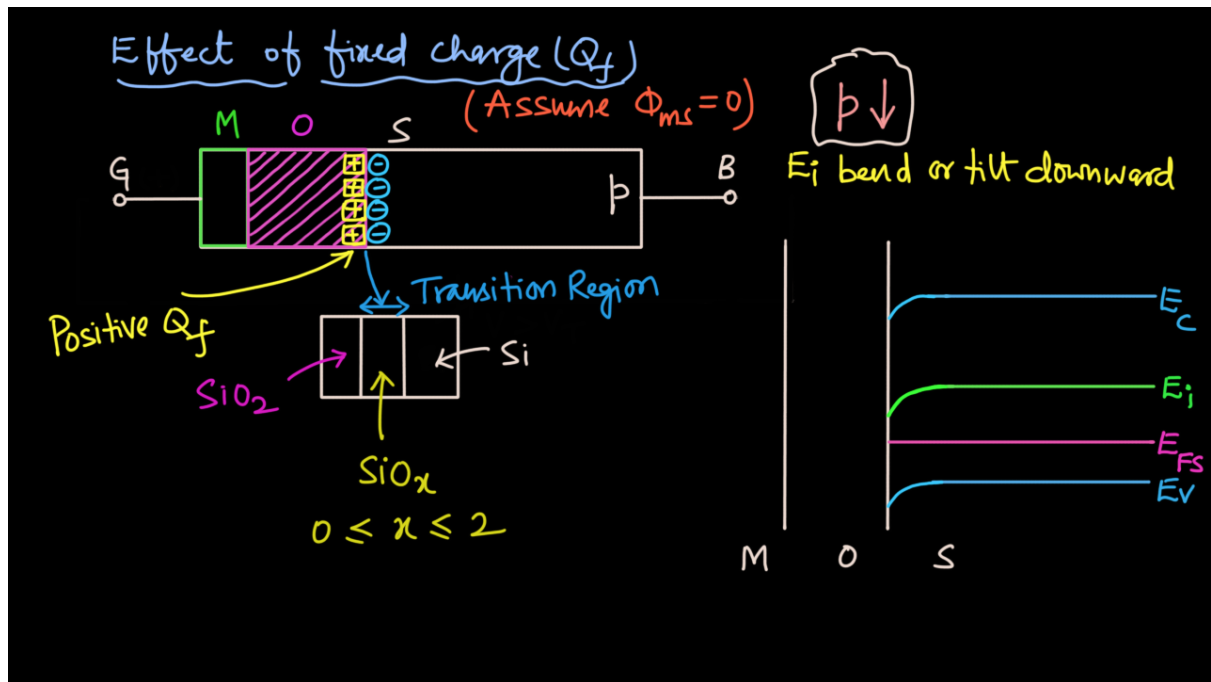 Effect of fixed charge (Qf)
(Assume Φms = 0)
p ↓
Ei bend or tilt downward
M O S
G
B
+ -
+ -
+ -
+ -
p
Transition Region
Positive Qf
SiO2
Si
SiOx
0 ≤ x ≤ 2
EC
Ei
EFS
EV
M O S